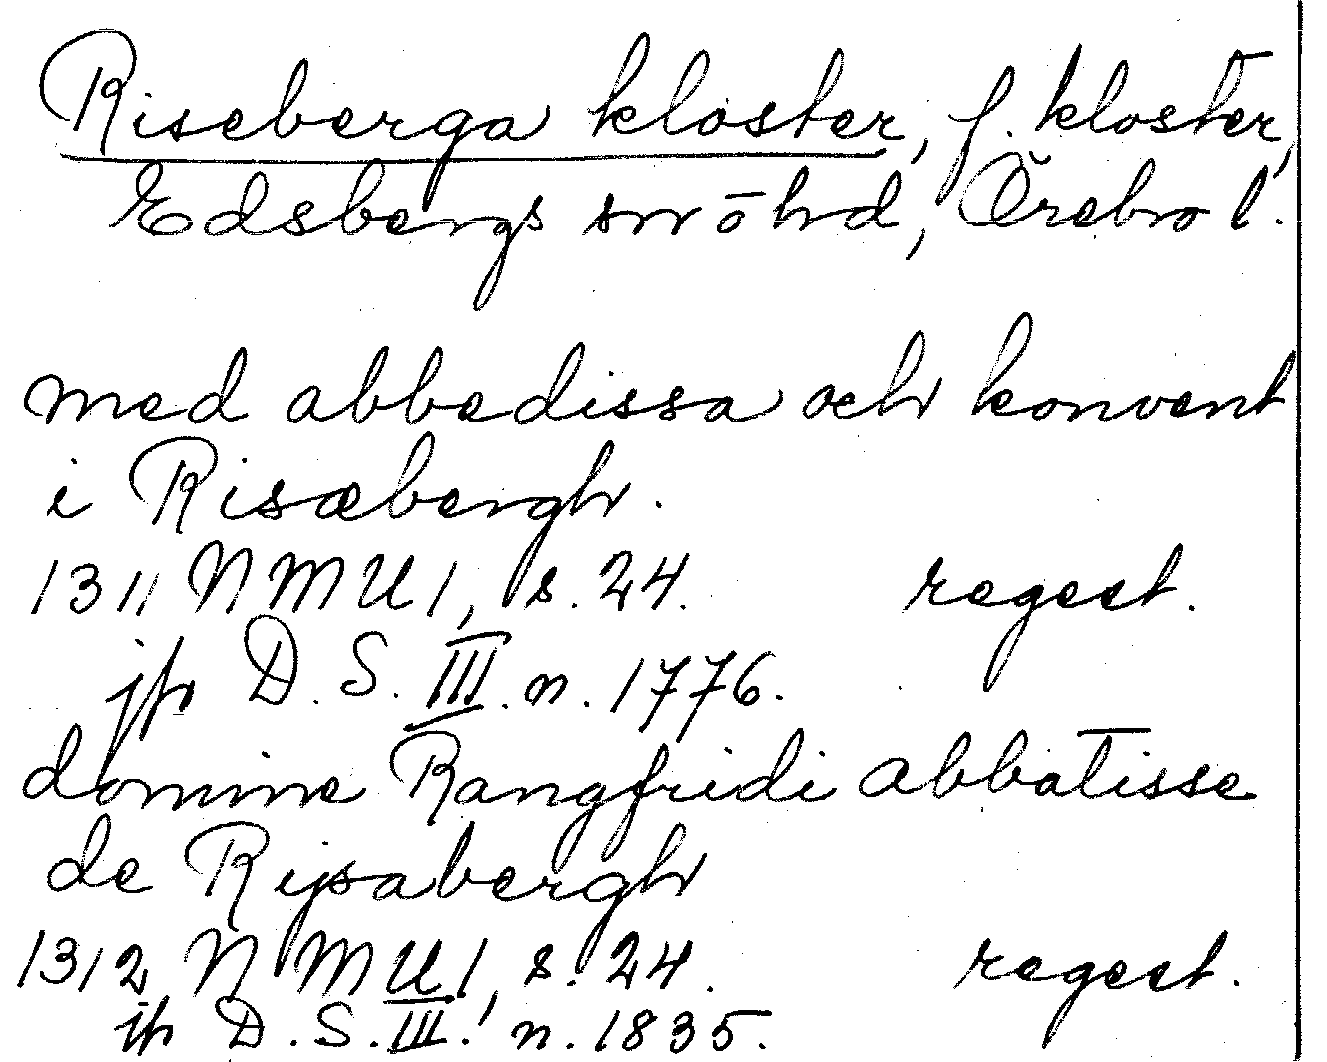 Riseberga kloster, f. kloster,
Edsbergs sn o hd, Örebro l.
med abbedissa och konvent
i Risæbergh.
1311 NMU 1, s. 24. regest.
jfr D. S. III. n. 1776.
domine Rangfridi abbatisse
de Rijsabergh
1312 NMU 1, s. 24. regest.
jfr D. S. III. n. 1835.